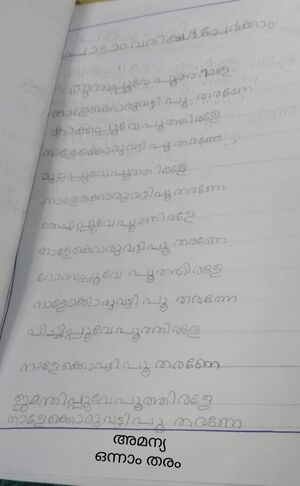 പാടാം വരികൾ ചേർക്കാം
തുമ്പപ്പൂവേ പൂത്തിരളേ
നാളേക്കൊരുവട്ടി പൂ തരണേ
കാക്കപ്പൂവേ പൂത്തിരളേ
നാളേക്കൊരുവട്ടി പൂ തരണേ
മുല്ലപ്പൂവേ പൂത്തിരളേ
നാളേക്കൊരുവട്ടി പൂ തരണേ
തെച്ചിപ്പൂവേ പൂത്തിരളേ
നാളേക്കൊരുവട്ടി പൂ തരണേ
റോസപ്പൂവേ പൂത്തിരളേ
നാളേക്കൊരുവട്ടി പൂ തരണേ
പിച്ചിപ്പൂവേ പൂത്തിരളേ
നാളേക്കൊവട്ടി പൂ തരണേ
ജമന്തിപ്പൂവേ പൂത്തിരളേ
നാളേക്കൊരുവട്ടി പൂ തരണേ
അമന്യ
ഒന്നാം തരം